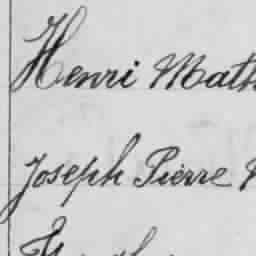 Henri Math
Joseph Pierre